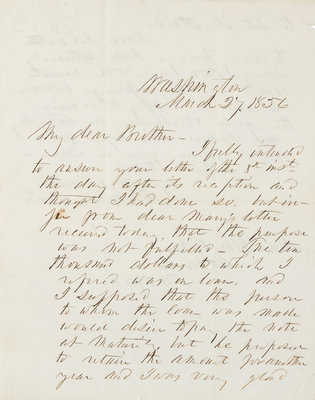 Washington
March 27, 1856
My dear Brother -
I fully intended
to answer your letter of the 8th inst.
the day after its reception and
thought I had done so, but in-
fer from dear Mary's letter
received today that the purpose
was not fulfilled - The ten
thousand dollars to which I
refered was on loan, and
I supposed that the person
to whom the loan was made
would desire to pay the note
at maturity, but he proposed
to retain the amount for another
year and I was very glad